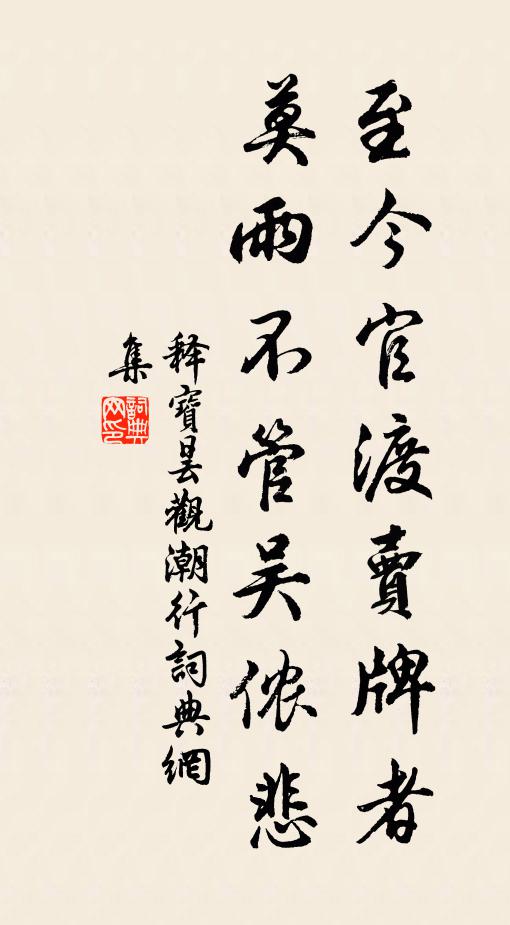 至今官渡賣牌者
莫雨不管吴侬悲
释寶昙觀潮行詞典網
集
詞典网印